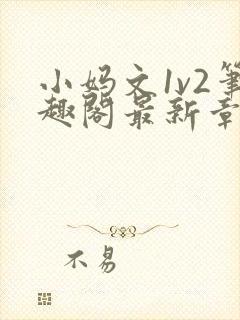 小妈文1v2笔
趣阁最新章
不易